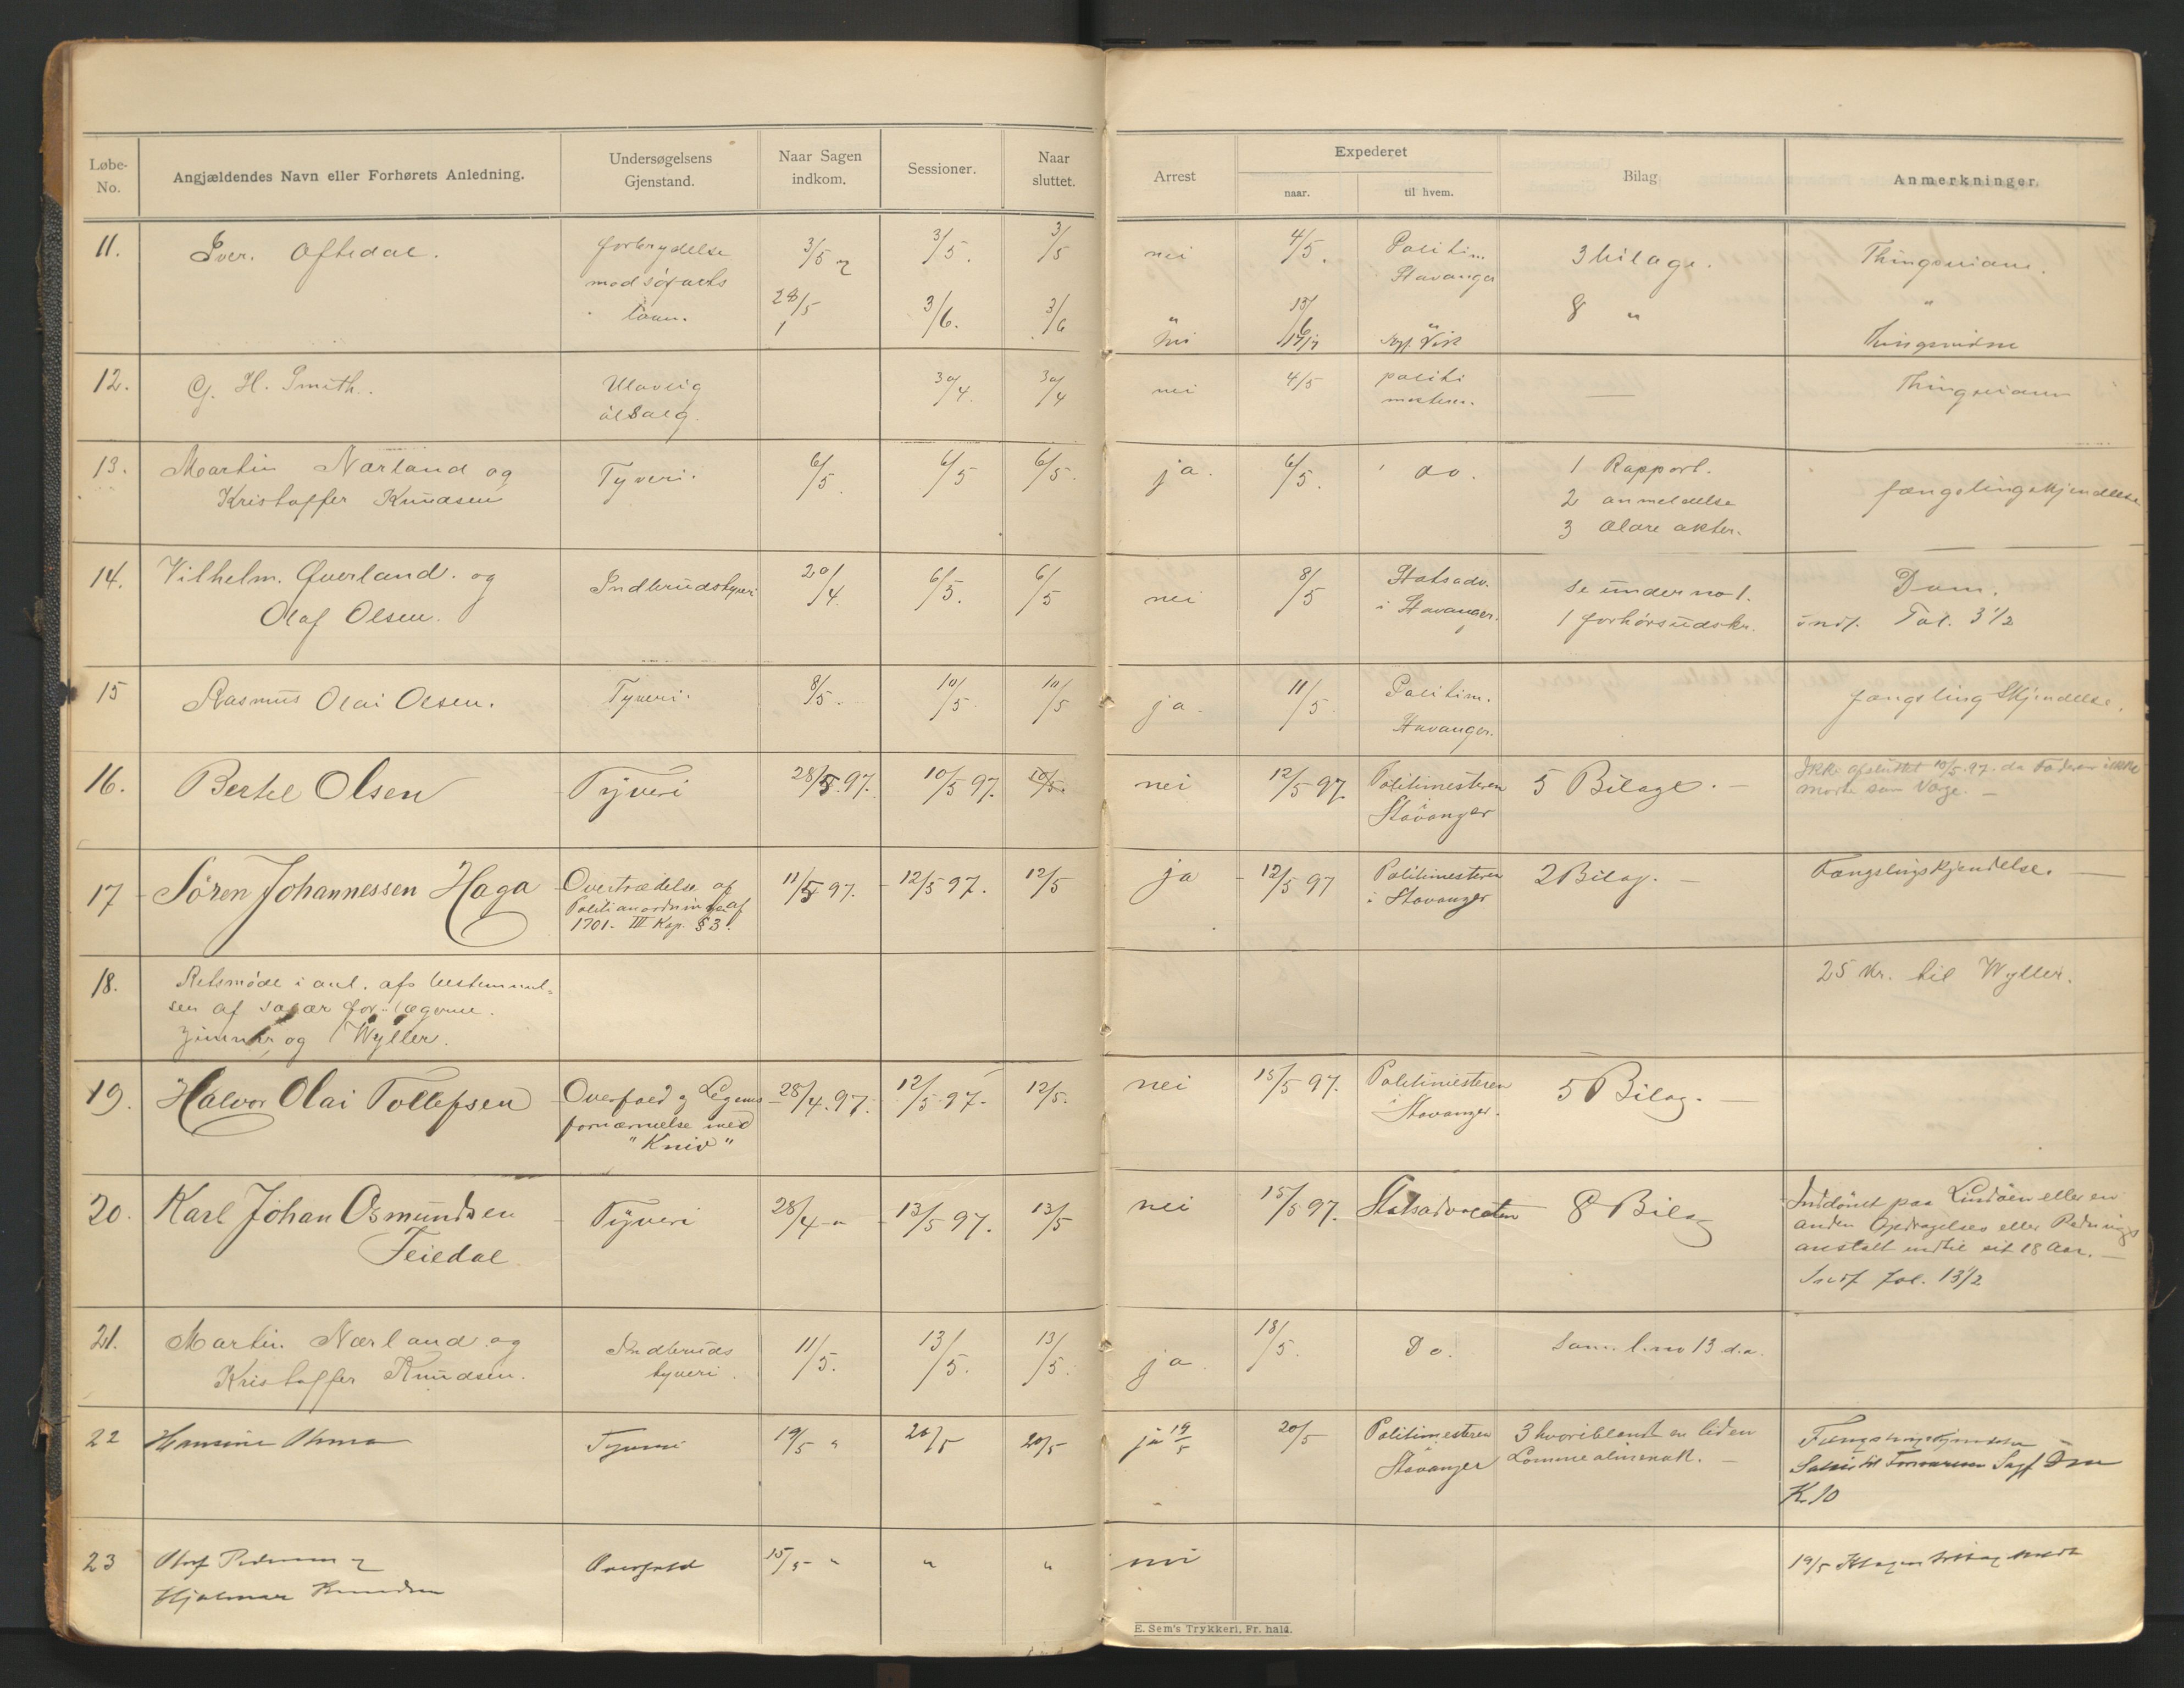 Løbe-No. Angjældendes Navn eller Forhørets Anledning. Undersøgelsens Gjenstand. Naar Sagen indkom. Sessioner. Naar sluttet. Arrest Expederet naar. til hvem. Bilag Anmerkninger.
11. Iver. Aftedal. forbrydelse 3/5 og 3/5. 3/5 nei 4/5. Politim. 3 bilage.
mod søfarts Stavanger
loven. 28/5 3/6. 3/6 " 13/6 " 8 " "
nei
12. G. H. Smith. Ulovlig 30/4. 30/4 nei 4/5 politi —
ølsalg. mesteren.
13. Martin Nærland og Tyveri. 6/5. 6/5 6/5. ja. 6/5. do. 1 Rapport. fængslingskjendelse
Kristoffer Knudsen 2 anmeldelse
3 ældre akter.
14. Vilhelm. Qverland. og Indbrudstyveri 20/4. 6/5. 6/5 nei 8/5 Statsadv. se under no 1. Dom.
Olaf Olsen. i Stavanger. 1 forhørsudskr. indf. Fol. 3 1/2
15 Rasmus Olai Olsen. Tyveri. 8/5. 10/5. 10/5 ja. 11/5. Politim. fængsling Skjendelse.
Stavanger.
16. Bertel Olsen Tyveri 28/5.97. 10/5 97. 10/5. nei 12/5 97. Politimesteren 5 Bilage. — Ikke afsluttet 10/5.97. da Faderen ikke
Stavanger mødte som Værge. —
17 Sören Johannessen Haga Overtrædelse af 11/5 97. 12/5 97. 12/5 ja 12/5 97 Politimesteren 2 Bilag. — Fængslingskjendelse. —
Politianordningen af i Stavanger
1701. III Kap. § 3.
18. Retsmøde i anl. af bestemmel= 25 Kr. til Wyller.
sen af salær for lægerne.
Zimmer og Wyller.
19. Halvor Olai Tollefsen Overfald og Legems 28/4.97. 12/5 97. 12/5. nei 15/5 97. Politimesteren 5 Bilag. —
fornærmelse med i Stavanger.
"Kniv"
20. Karl Johan Osmundsen Tyveri 28/4 " 13/5 97. 13/5 nei 15/5 97. Statsadvocaten 8 Bilag Inddömt paa Lindöen eller en
Feiedal anden Opdragelses eller Rednings
anstalt indtil sit 18 Aar. —
Indf. Fol. 13 1/2
21. Martin Nærland og Indbruds 11/5. 13/5. 13/5. ja 18/5. Do. Som l. no 13 d.a.
Kristoffer Knudsen. tyveri.
22 Hansine Tyveri 19/5 " 20/5 20/5 ja 19/5 20/5 Politimesteren 3 hvoriblandt en liden Fængslingskjendelse
i Stavanger Lommealmenak. — Salær til Forsvareren Sagf.
K. 10
23 Olaf Pedersen og Overfald 15/5 " " " nei 19/5 Klagen
Hjalmar Knudsen
E. Sem's Trykkeri, Fr. hald.